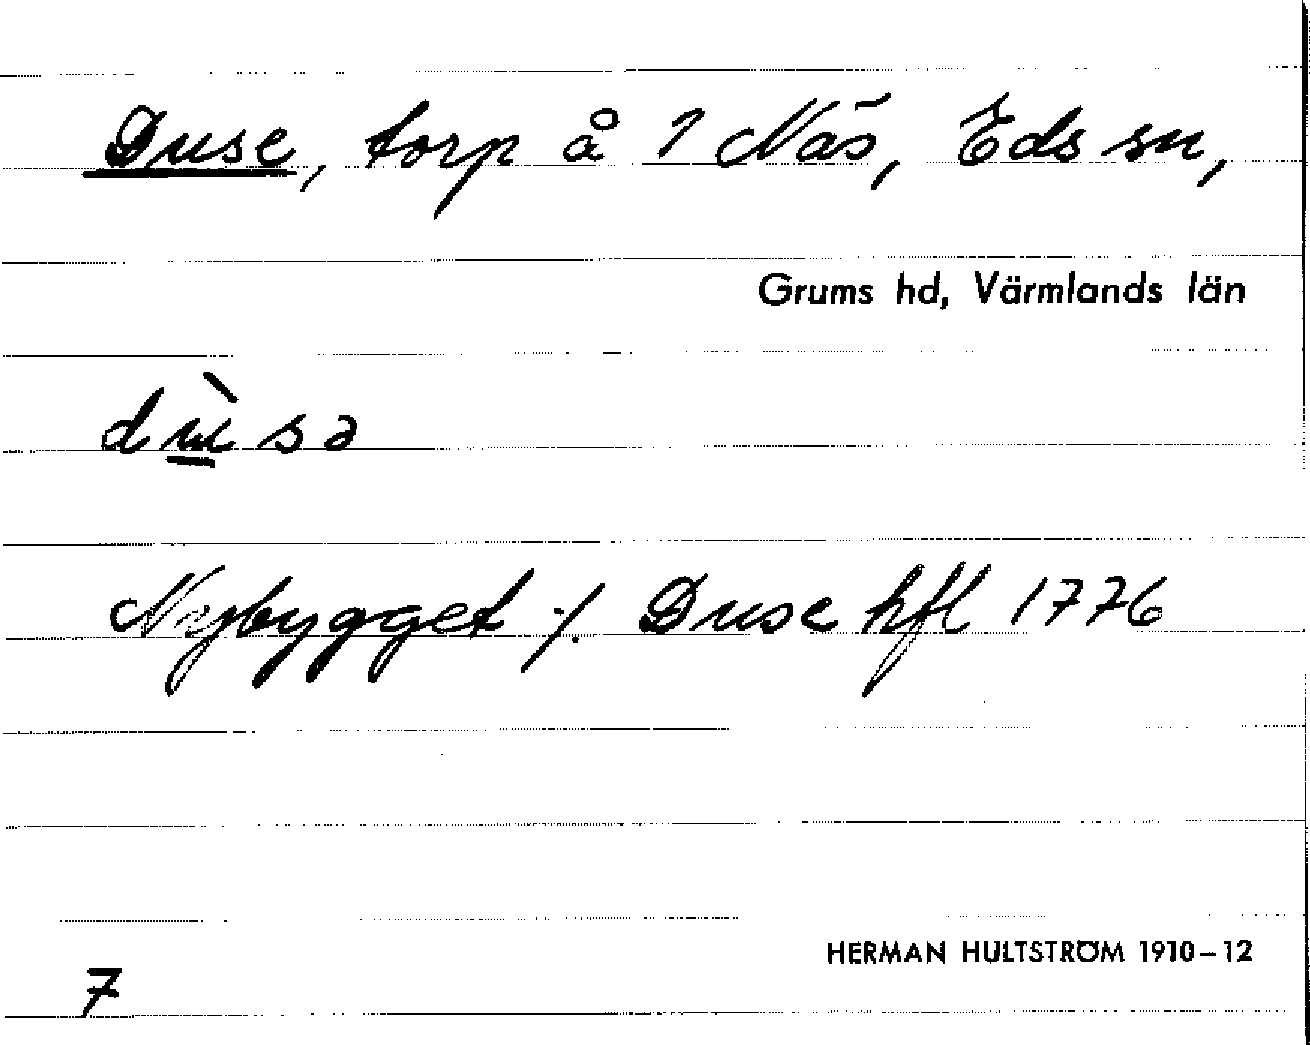 Duse, torp å 1 Näs, Eds sn,
Grums hd, Värmlands län
dùsə
Nybygget ⁒ Duse hfl 1776
HERMAN HULTSTRÖM 1910–12
7